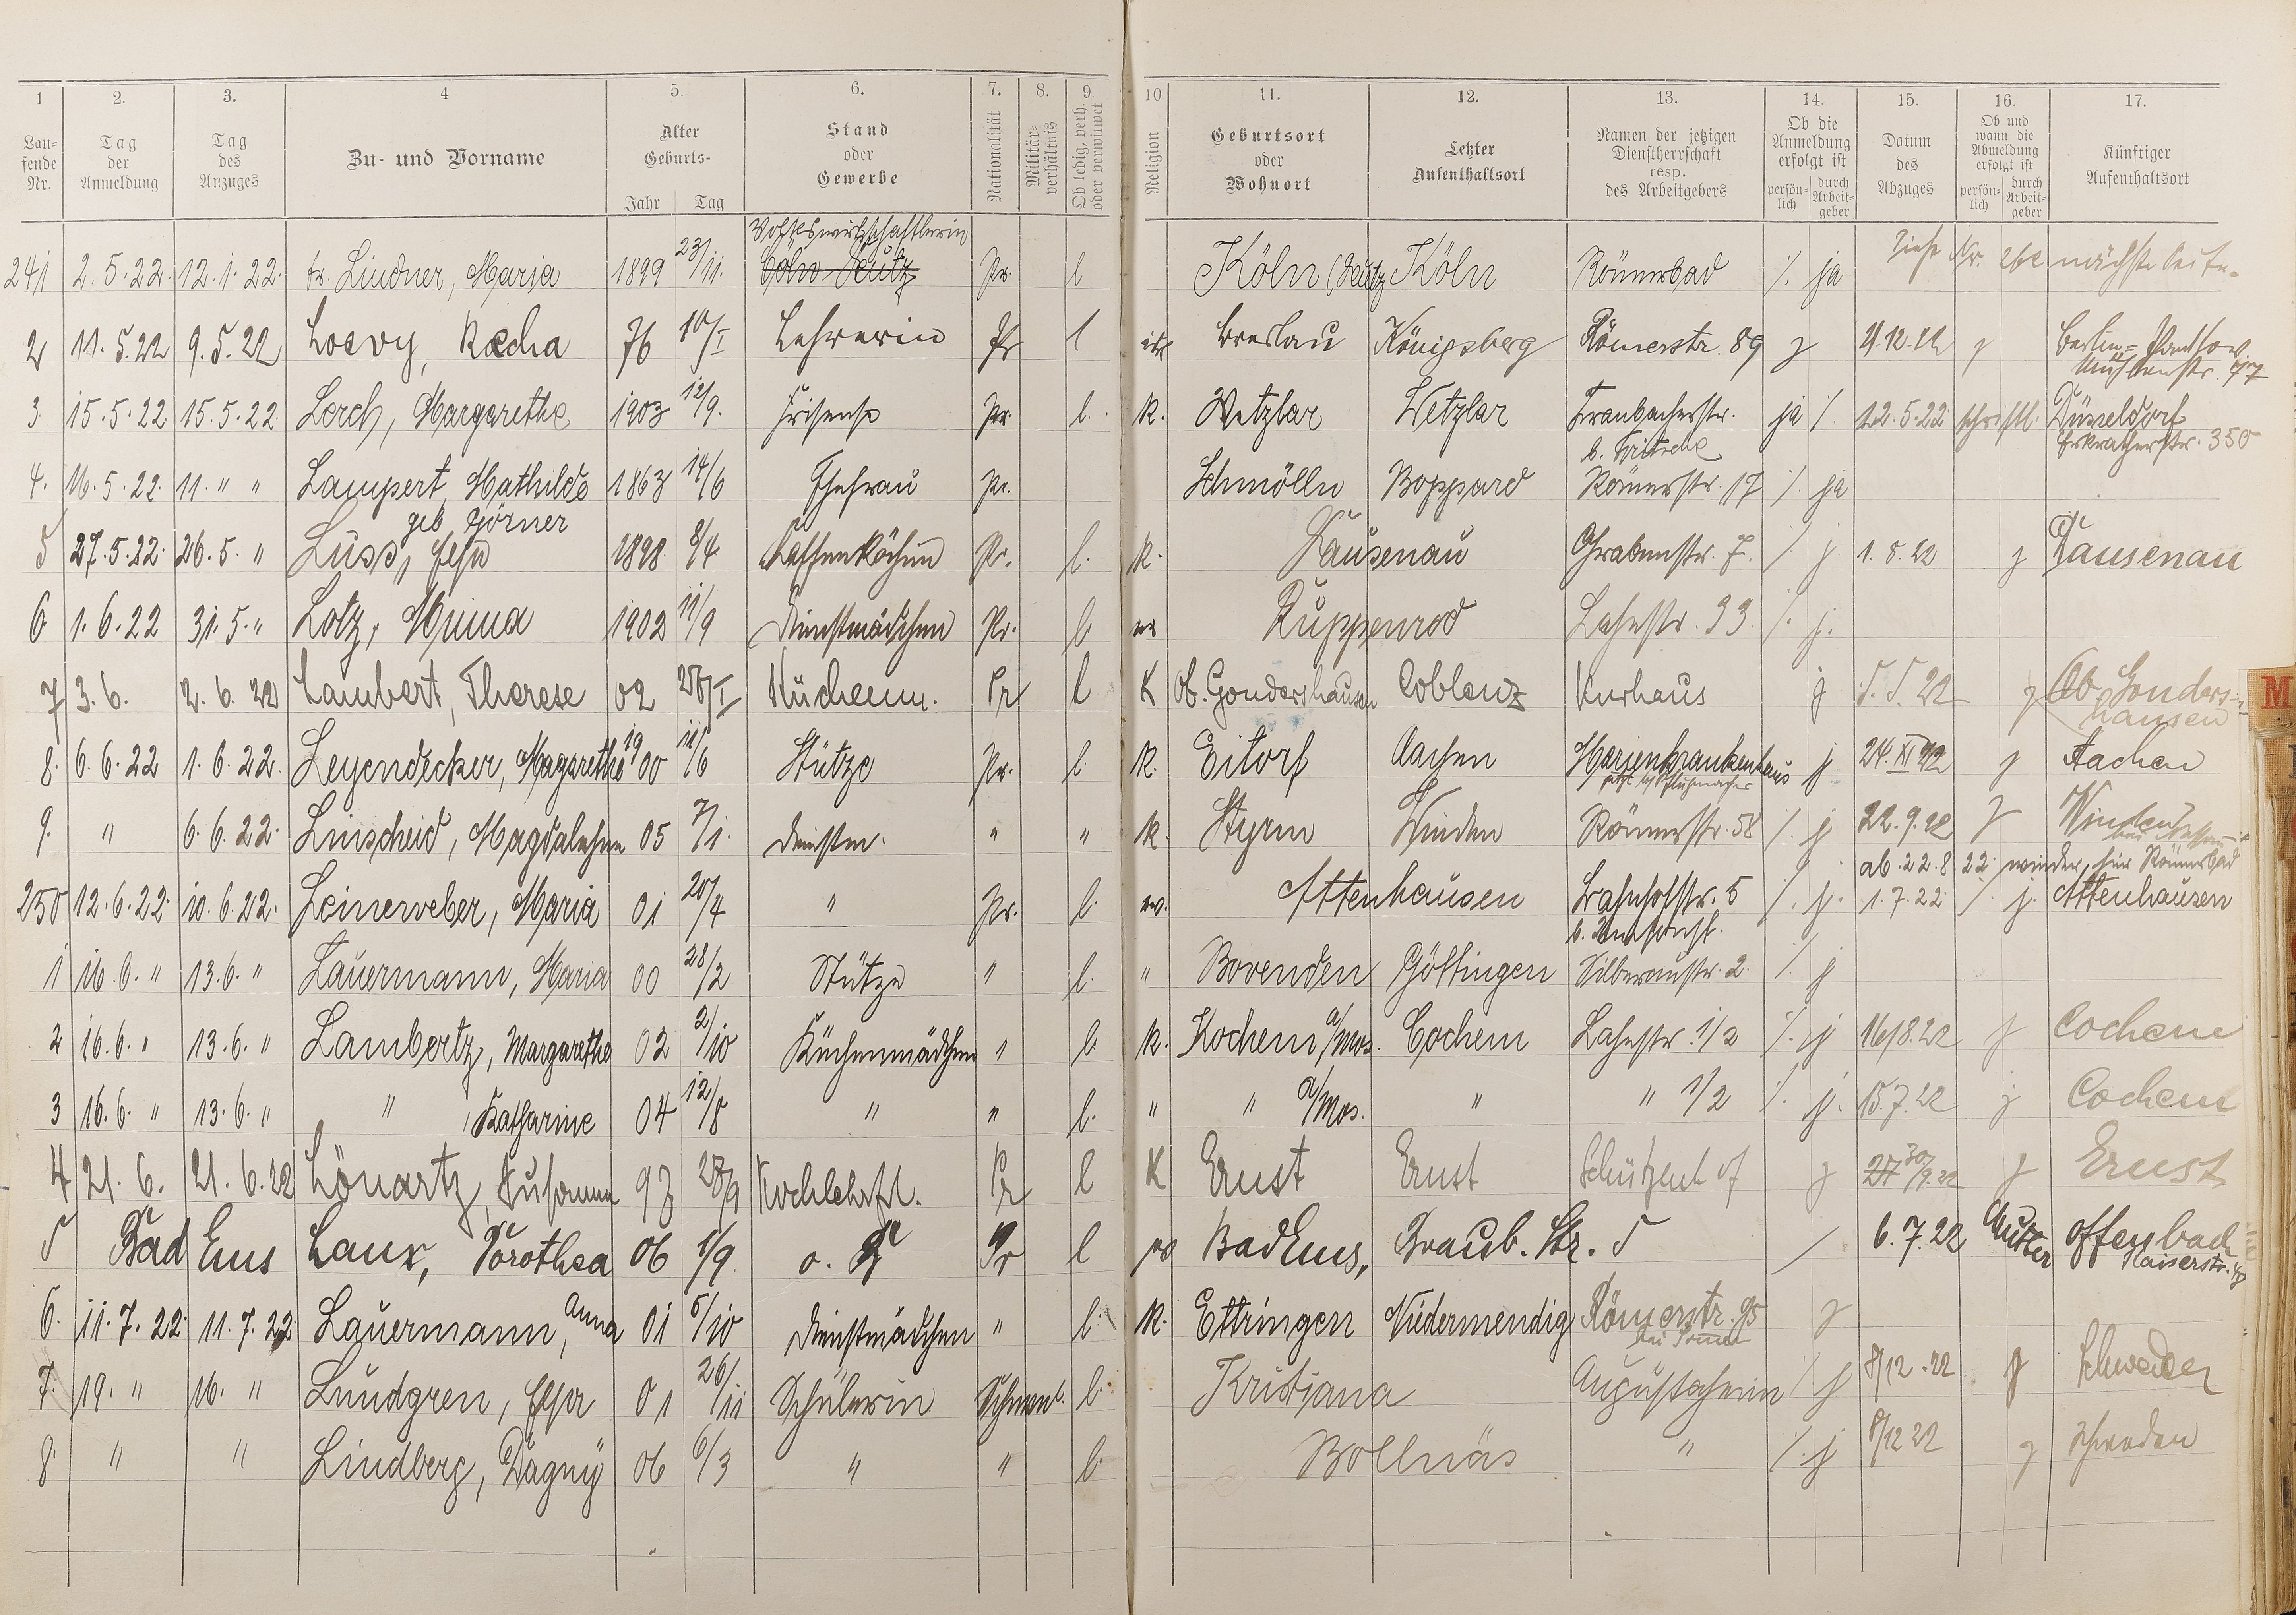 1 2. 3. 4 5. 6. 7. 8. 9. 10 11. 12. 13. 14. 15. 16. 17.
Lau-
fende
Nr.
Tag
der
Anmeldung
Tag
des
Anzuges
Zu- und Vorname
Alter
Geburts-
Jahr Tag
Stand
oder
Gewerbe
Nationalität
Militär-
verhältnis
Ob ledig, verh.
oder verwitwet
Religion
Geburtsort
oder
Wohnort
Letzter
Aufenthaltsort
Namen der jetzigen
Dienstherrschaft
resp.
des Arbeitgebers
Ob die
Anmeldung
erfolgt ist
persön-
lich
durch
Arbeit-
geber
Datum
des
Abzuges
Ob und
wann die
Abmeldung
erfolgt ist
persön-
lich
durch
Arbeit-
geber
Künftiger
Aufenthaltsort
Volkswirtschaftlerin
241 2.5.22. 12.1.22. fr. Lindner, Maria 1899 23/11. Cöln Deutz Pr. l Köln (Deutz Köln Römerbad /. ja Siehe Nr. nächste Seite.
2 11.5.22 9.5.22 Loevy, Recha 76 10/I Lehrerin Pr l isr Breslau Königsberg Römerstr. 89 j 4.12.22 j Berlin-Pankow
Mühlenstr. 77
3 15.5.22 15.5.22. Lerch, Margarethe 1903 12/9. Friseuse Pr. l. k. Wetzlar Wetzlar Graubacherstr. ja /. 12.5.22 schriftl. Düsseldorf
b. Fritsche Erkratherstr. 350
4. 16.5.22. 11. " " Lampert, Mathilde 1863 14/6 Ehefrau Pr. Schmölln Boppard Römerstr. 17 /. ja
geb. Görner
5 27.5.22. 26.5. " Lüss, Elsa 1898 8/4 Kaffeeköchin Pr. l. k. Dausenau Grabenstr. 7. / j. 1.8.22 j Dausenau
6 1.6.22 31.5. " Lotz, Minna 1902 11/9 Dienstmädchen Pr. l. ev Ruppenrod Lahnstr. 33. /. j.
7 3.6. 2.6.22 Lambert, Therese 02 28/I Küchenm. Pr l K Ob. Gondershausen Coblenz Kurhaus j 5.8.22 j Ob Gonders-
hausen
8. 6.6.22 1.6.22. Leyendecker, Magarethe 1900 11/6 Stütze Pr. l. k. Eitorf Aachen Marienkrankenhaus j 24.XI 22 j Aachen
9. " 6.6.22. Linscheid, Magdalehne 05 7/1. Dienstm. " " k. Styrum Winden Römerstr. 58 /. j 22.9.22 j Winden
bei Nassau
ab. 22.8.22. wieder, hier Römerbad
250 12.6.22. 10.6.22. Leinerweber, Maria 01 20/4 " Pr. l. ev. Attenhausen Bahnhofstr. 5 /. j. 1.7.22 /. j. Attenhausen
1 16.6. " 13.6. " Lauermann, Maria 00 28/2 Stütze " l. " Bovenden Göttingen Silberaustr. 2. /. j
2 16.6. " 13.6. " Lambertz, Margarethe 02 2/10 Küchenmädchen " l. k. Kochem a/Mos. Cochem Lahnstr. 1/2 /. j 16/8.22 j Cochem
3 16.6. " 13.6. " " , Katharine 04 12/8 " " l. " " a/Mos. " " 1/2 /. j. 15.7.22 j Cochem
4 21.6. 21.6.22 Lönartz, Susanna 93 28/9 Kochlehrfrl. Pr l K Ernst Ernst Schützenhof j 27 30/9.22 j Ernst
5 Bad Ems Laux, Dorothea 06 1/9. o. Pr l ev Bad Ems, Graub. Str. 5 / 6.7.22 Mutter Offenbach
Kaiserstr.
6. 11.7.22. 11.7.22 Lauermann, Anna 01 5/10 Dienstmädchen " l. k. Ettringen Niedermendig Römerstr. 95 j
7. 19. " 16. " Lundgren, Elsa 01 26/11 Schülerin Schwed. l. Kristiana Augustaheim /. j 8/12.22 j Schweden
8. " " Lindberg, Dagny 06 6/3 " " l. Bollnäs " /. j 8/12 22 j Schweden
M